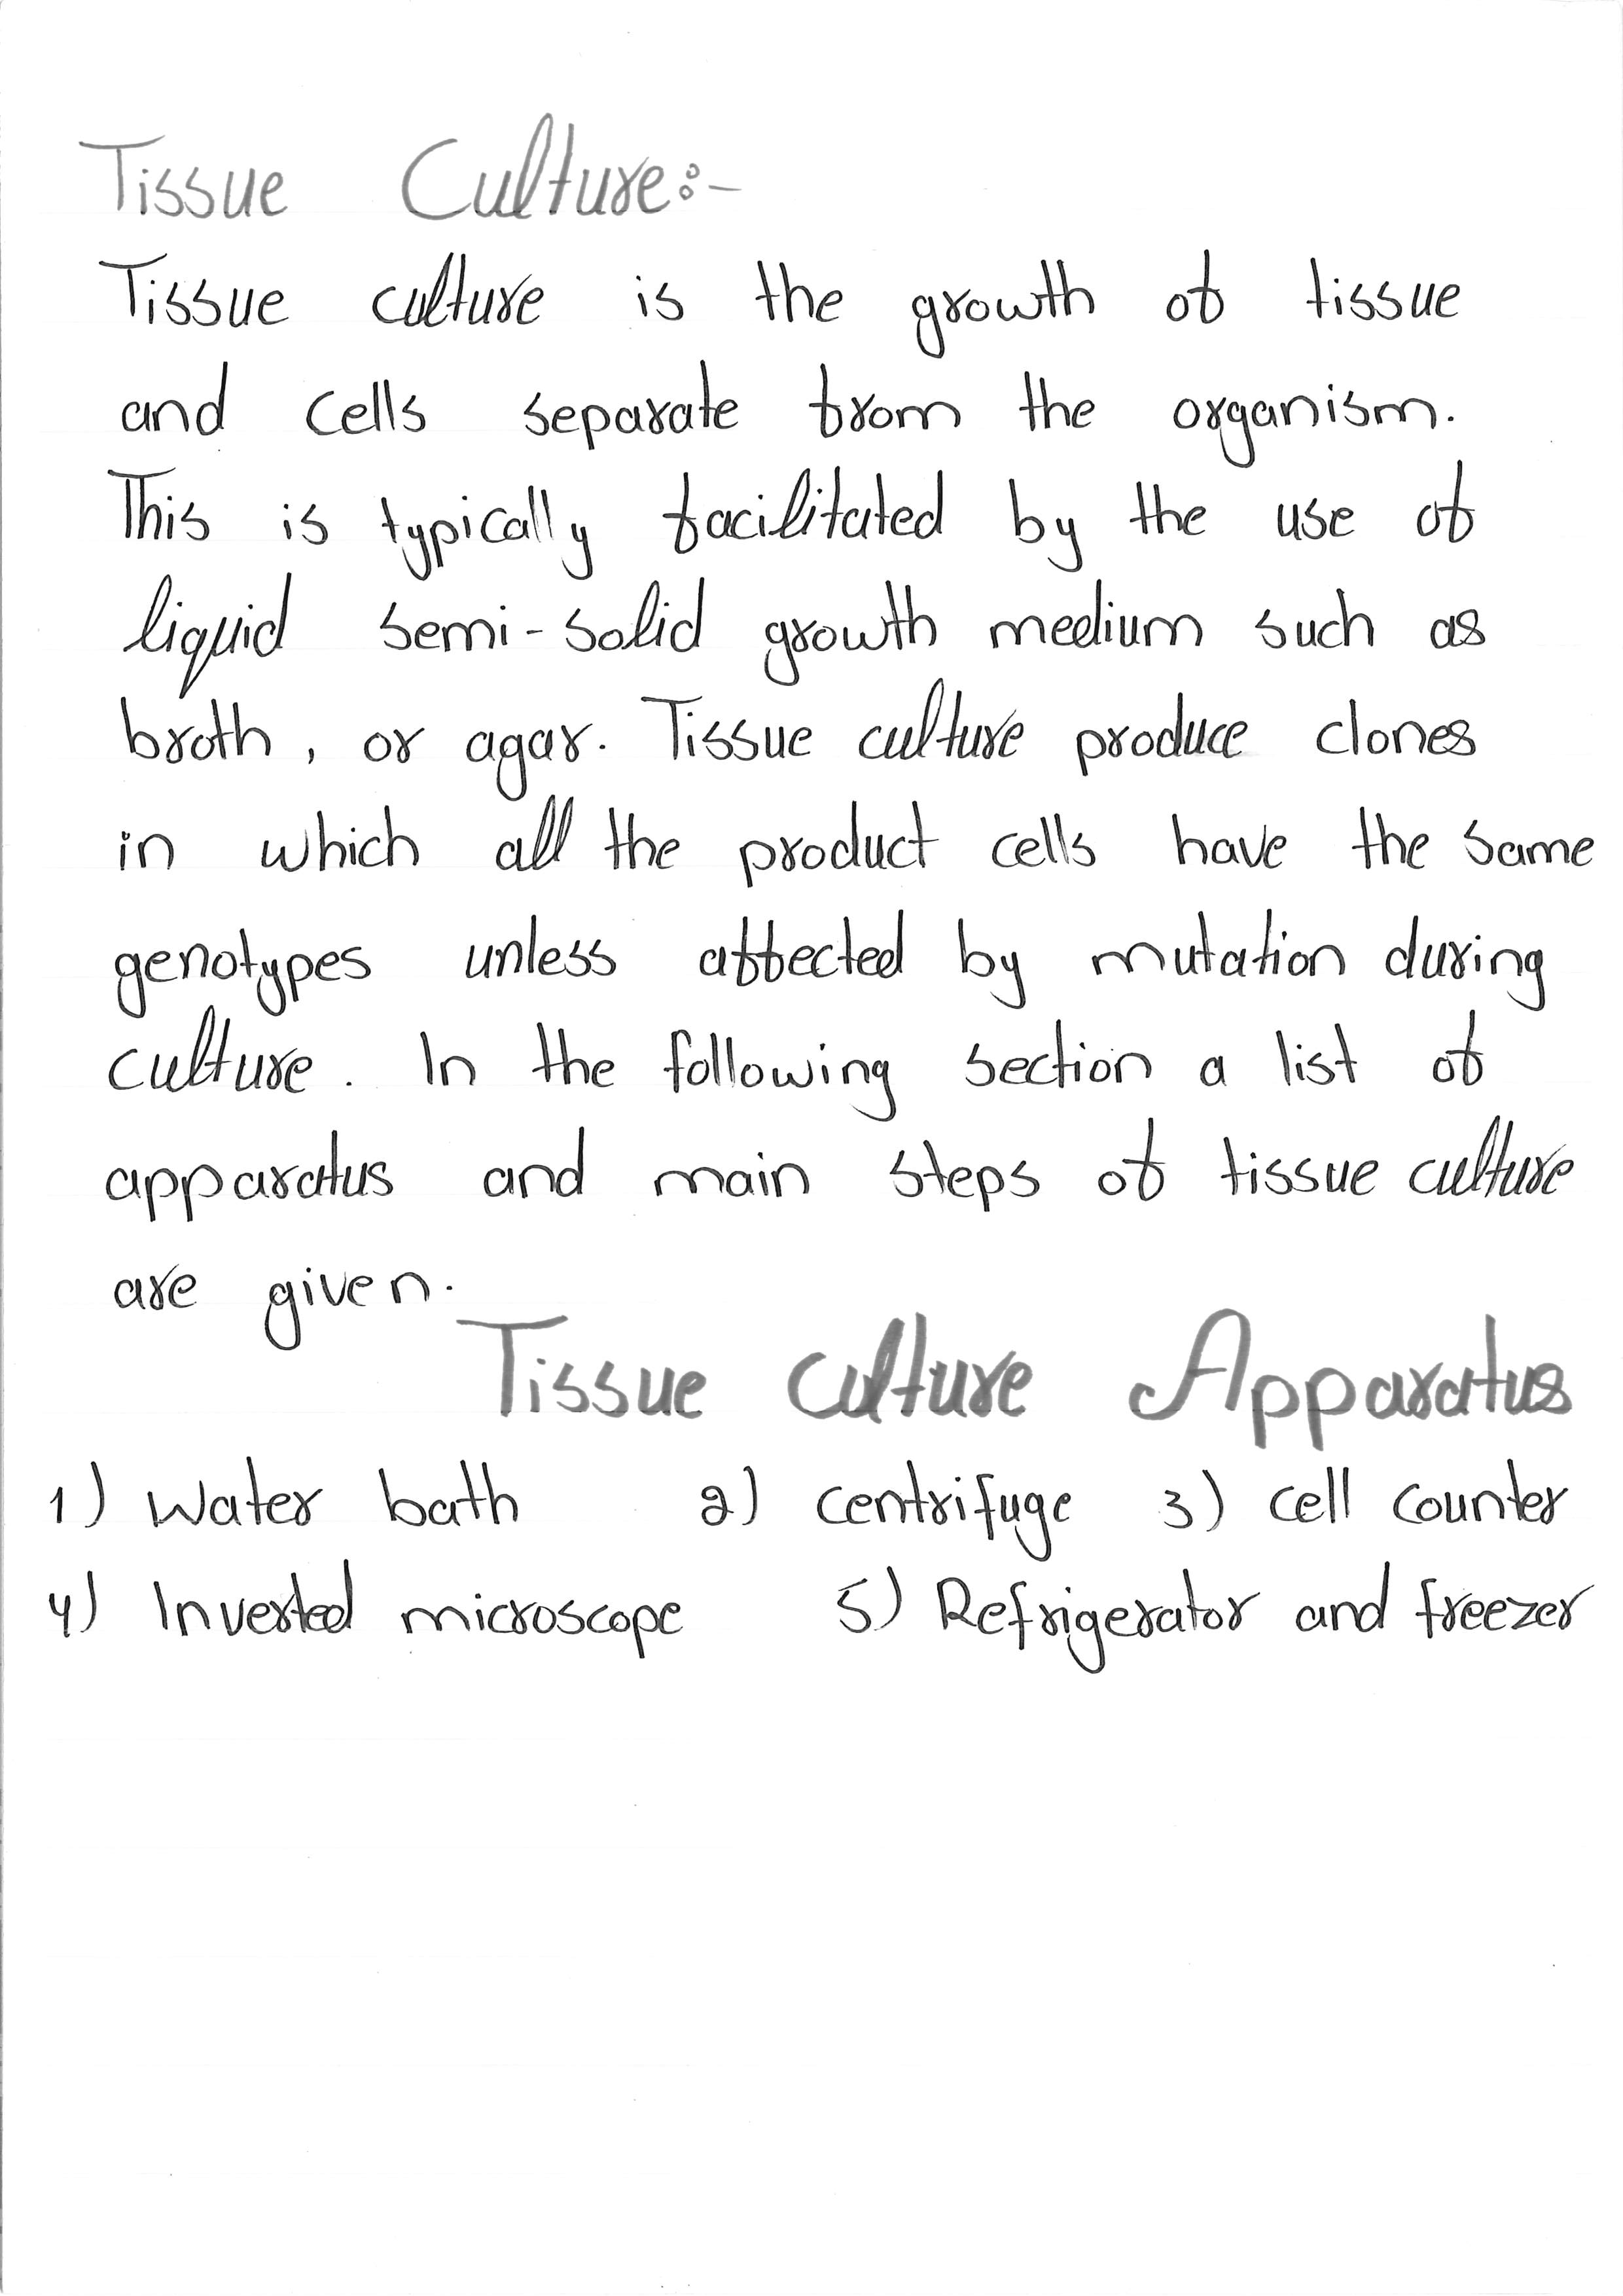 Tissue Culture:-
Tissue culture is the growth of tissue
and cells separate from the organism.
This is typically facilitated by the use of
liquid semi-solid growth medium such as
broth, or agar. Tissue culture produce clones
in which all the product cells have the same
genotypes unless affected by mutation during
culture. In the following section a list of
apparatus and main steps of tissue culture
are given.
Tissue Culture Apparatus
1) Water bath 2) centrifuge 3) cell counter
4) Inverted microscope 5) Refrigerator and freezer